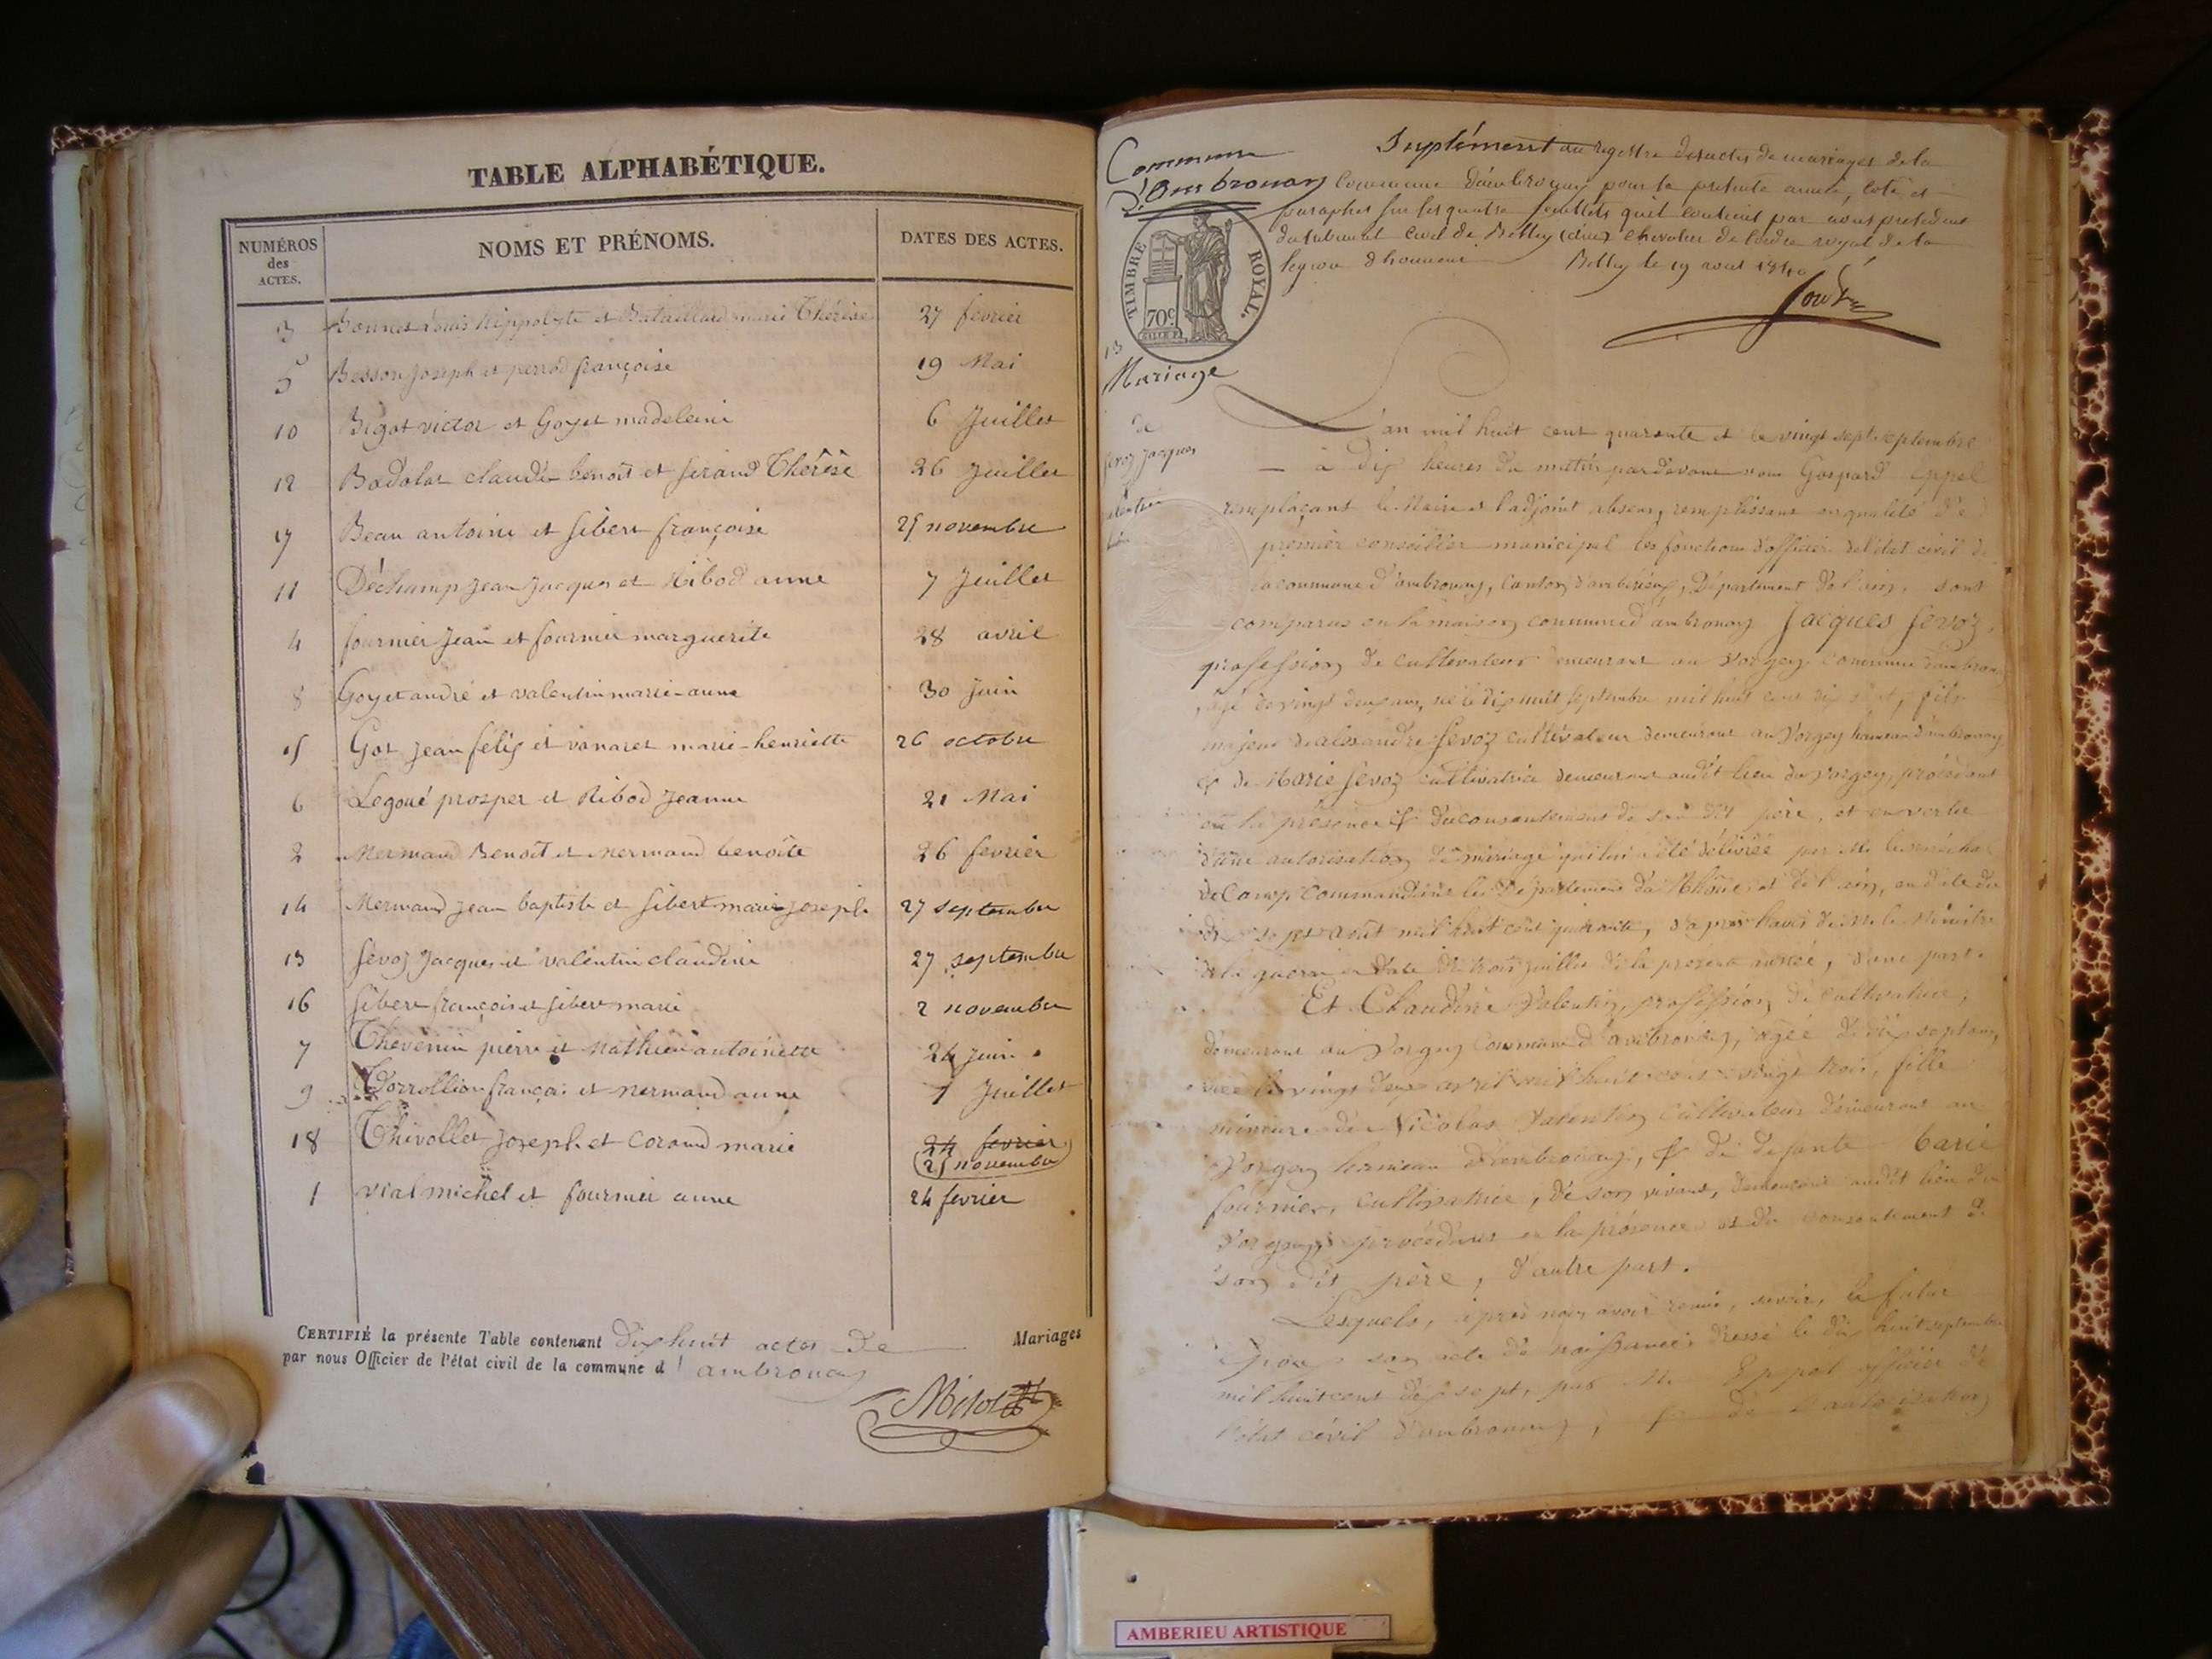 TABLE ALPHABÉTIQUE.
NUMÉROS des ACTES.
NOMS ET PRÉNOMS.
DATES DES ACTES.
3 Louis hippolyte et Bataillard marie Thérèse 27 février
5 Besson Joseph et perrod françoise 19 Mai
10 Bigot victor et Goyet madeleine 6 Juillet
12 Badolat claude benoit et Serand Thérèse 26 Juillet
17 Beau antoine et Sibert françoise 25 novembre
11 Déchamp Jean Jacques et Ribod anne 7 Juillet
4 fournier Jean et fournier marguerite 28 avril
8 Goyet andré et valentin marie-anne 30 Juin
15 Got Jean felix et vanaret marie-henriette 26 octobre
6 Legoué prosper et Ribod Jeanne 21 Mai
2 Mermand Benoît et Mermand benoite 26 fevrier
14 Mermand Jean baptiste et Sibert marie Joseph 27 septembre
13 Sevoz Jacques et valentin claudine 27 septembre
16 Sibert françois et Sibert marie 2 novembre
7 Thevenin pierre et Mathieu antoinette 24 juin
9 françois et Mermand anne 1 Juillet
18 Thivollet Joseph et Corand marie 24 fevrier
25 novembre
1 vial michel et fournier anne 24 fevrier
CERTIFIÉ la présente Table contenant dix huit actes de Mariages
par nous Officier de l'état civil de la commune d'ambronay
Commune
d'Ambronay
Suplément au registre des actes de mariages de la
commune d'ambronay pour la présente année, coté et
paraphé sur les quatre feuillets qu'il contient par nous président
du tribunal civil de Belley (ain) chevalier de l'ordre royal de la
legion d'honneur Belley le 19 aout 1840
TIMBRE ROYAL.
70c
13
Mariage
de
Sevoz Jacques
L'an mil huit cent quarante et le vingt sept septembre
à dix heures du matin pardevant nous Gaspard Eppel
remplaçant le Maire et l'adjoint absens, remplissant en qualité de
premier conseiller municipal les fonctions d'officier de l'état civil de
la commune d'ambronay, canton d'ambérieux, Département de l'ain, sont
comparus en la maison commune d'ambronay Jacques Sevoz,
profession de cultivateur demeurant au Vorgey commune d'ambronay
, agé de vingt deux ans, né le dix huit septembre mil huit cent dix sept, fils
majeur d'alexandre Sevoz cultivateur demeurant au Vorgey hameau d'ambronay
& de Marie Sevoz cultivatrice demeurant audit lieu du Vorgey, procédant
en la présence & du consentement de son dit père, et en vertu
d'une autorisation de mariage qui lui a été délivrée par M. le maréchal
de Camp commandant les Départemens du Rhône et de l'ain, en date du
dix sept août mil huit cent quarante, d'après l'avis de M. le Ministre
de la guerre en date du trois juillet de la présente année, d'une part.
Et Claudine Valentin, profession de cultivatrice,
demeurant au Vorgey Commune d'ambronay, agée de dix sept ans,
née le vingt deux avril mil huit cent vingt trois, fille
mineure de Nicolas Valentin cultivateur demeurant au
Vorgey hameau d'ambronay, & de défunte
fournier, cultivatrice, de son vivant, demeurant audit lieu du
Vorgey procédant en la présence et du consentement de
son dit père, d'autre part.
Lesquels, après nous avoir remis, savoir, le futur
Epoux son acte de naissance dressé le dix huit septembre
mil huit cent dix sept, par M. Eppel officier de
l'état civil d'ambronay, de l'autorisation
AMBERIEU ARTISTIQUE